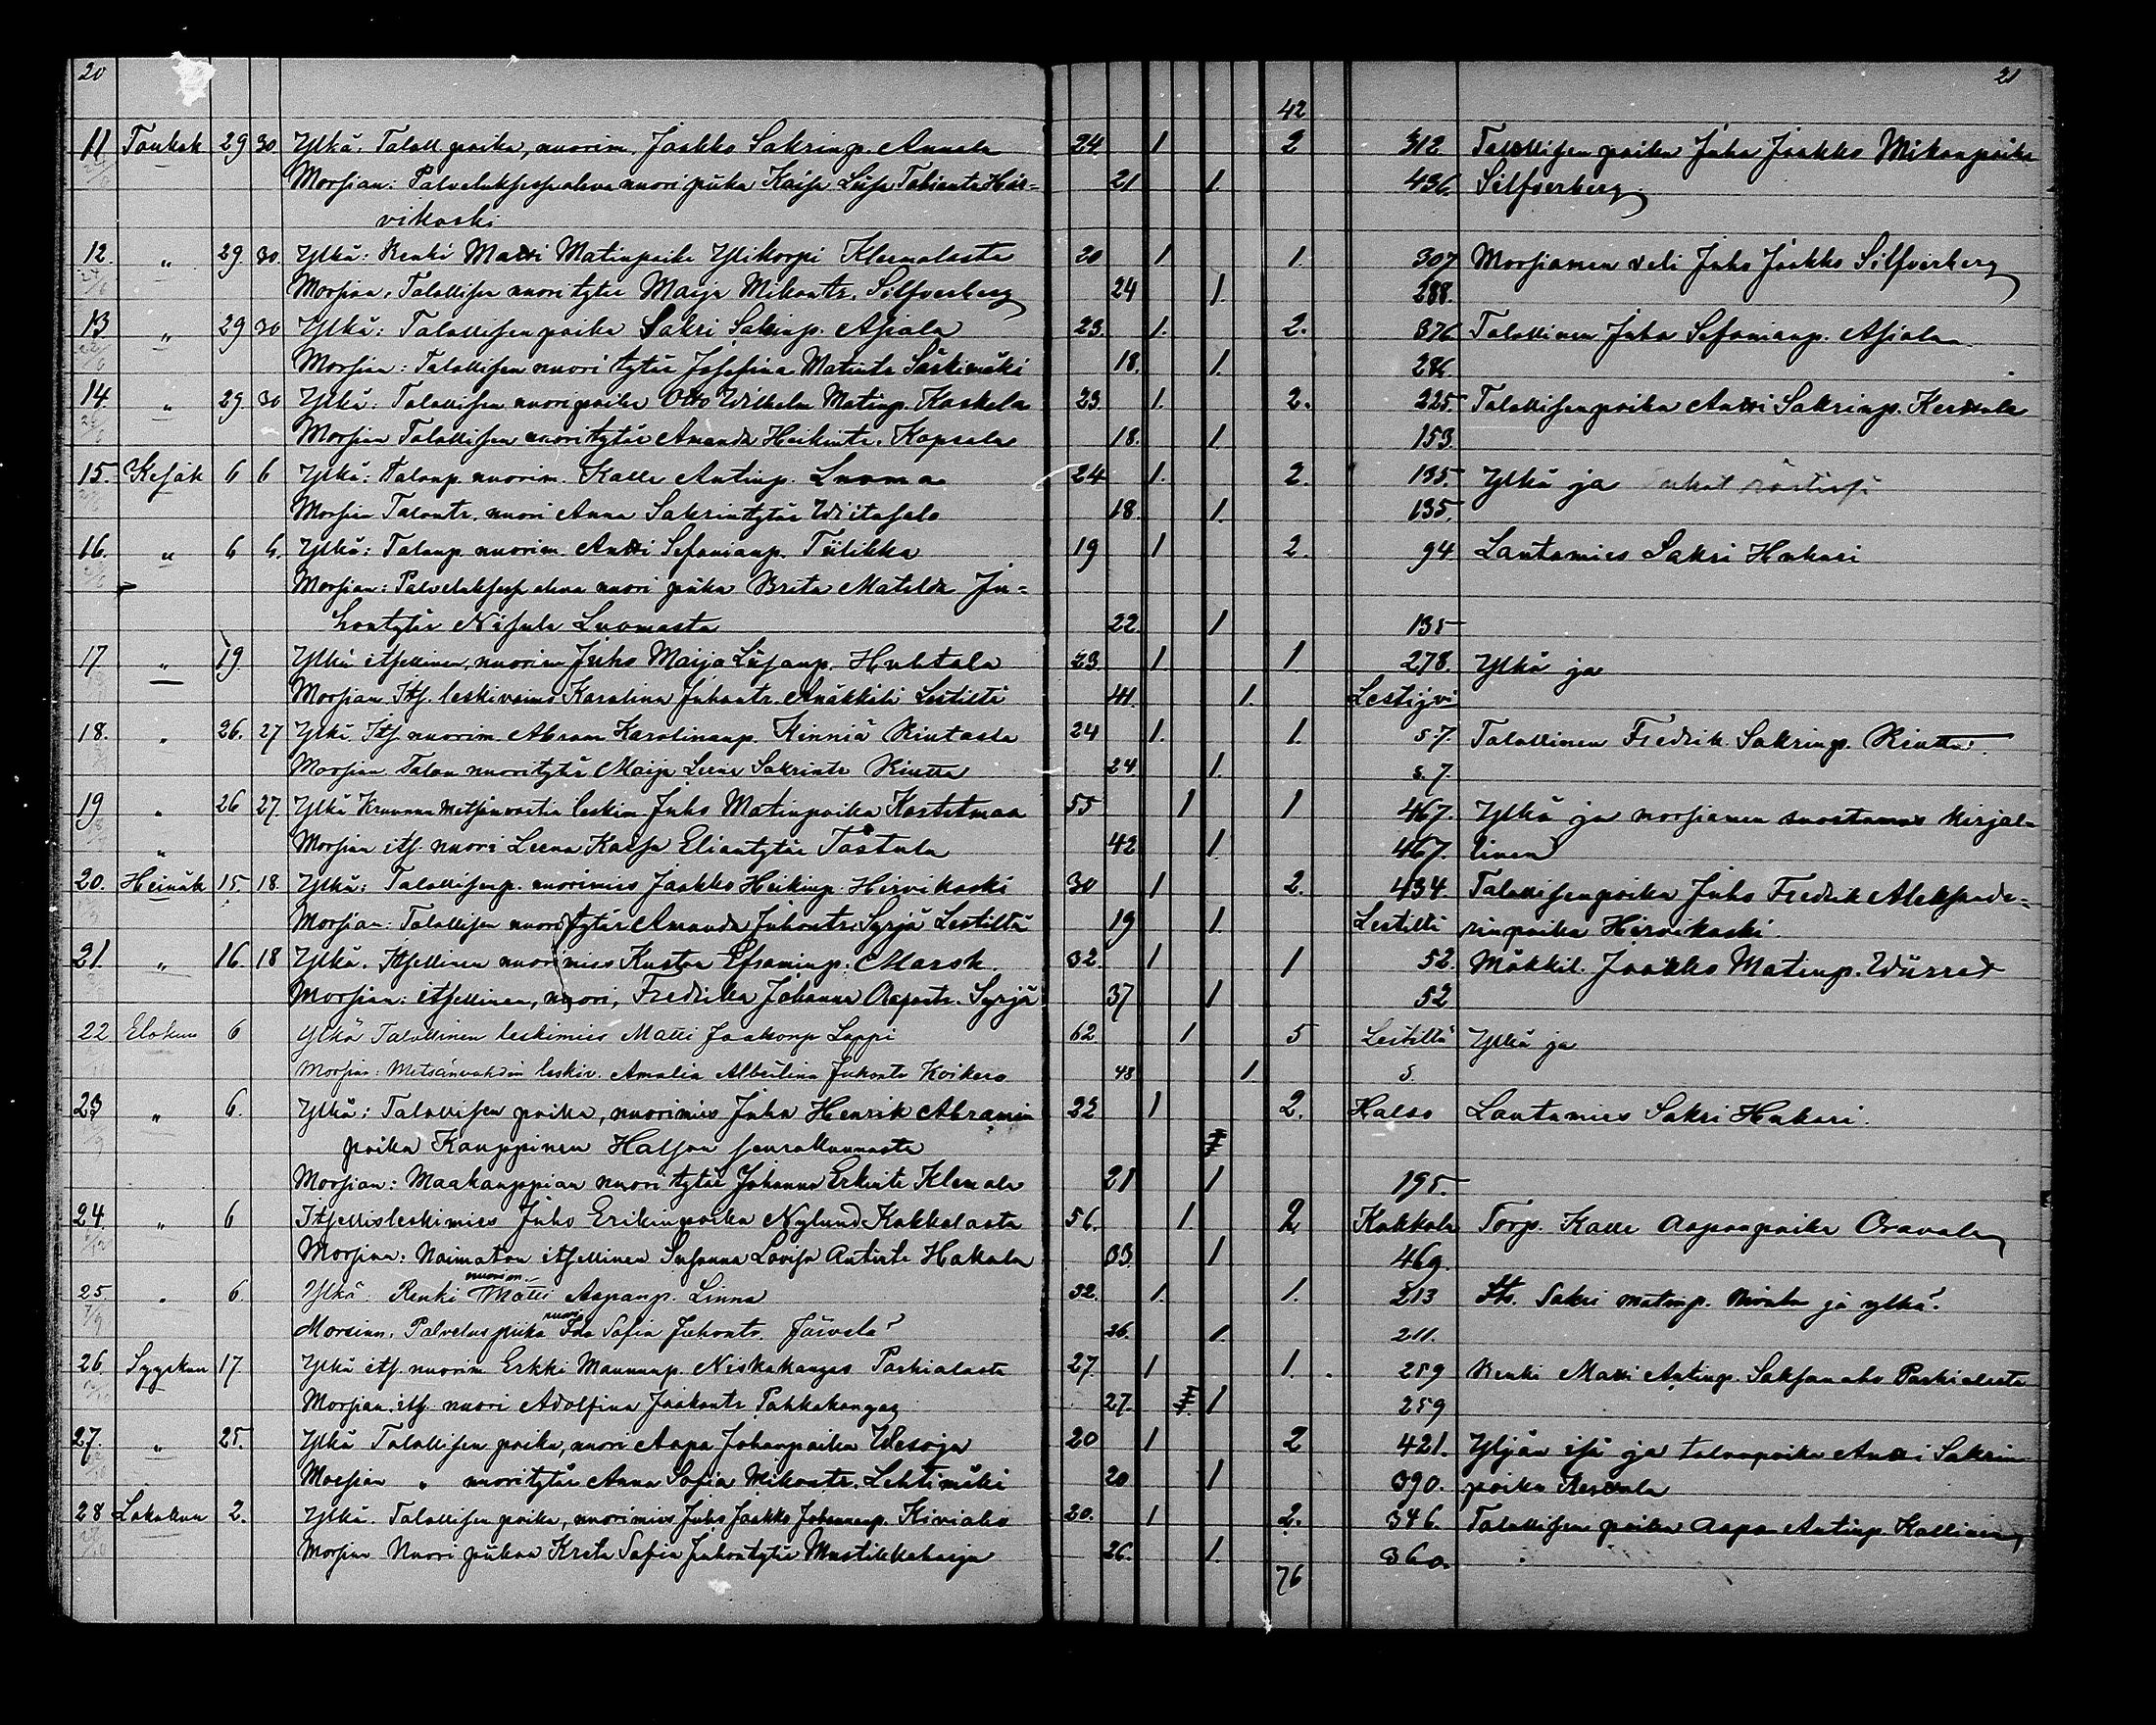 20 21
42
11 Toukok 29 30 Ylkä: Taloll poika, nuorim. Jaakko Sakrinp. Annala 24. 1. 2 312 Talollisen poika Juha Jaakko Mikonpoika
Morsian: Palveluksessa oleva nuori piika Kaisa Liisa Tobiantr Hir= 21 1. 436. Silfverberg
vikoski
12. " 29. 30. Ylkä: Renki Matti Matinpoika Ylikorpi Klemolasta 20 1 1. 307 Morsiamen veli Juho Jaakko Silfverberg
Morsian: Talollisen nuori tytär Maija Mikontr. Silfverberg 24 1. 288.
13 " 29 30 Ylkä: Talollisen poika Sakri Sakrinp. Asiala 23. 1. 2. 376 Talollinen Juha Sefanianp. Asiala
Morsian: Talollisen nuori tytär Josefina Matintr Särkimäki 18. 1. 286.
14. " 29. 30 Ylkä: Talollisen nuori poika Otto Wilhelm Matinp. Kaskela 23. 1. 2. 225. Talollisenpoika Antti Sakrinp. Kerttula
Morsian Talollisen nuori tytär Amanda Heikintr. Kopsala 18. 1. 153.
15. Kesäk 6 6 Ylkä: Talonp. nuorim. Kalle Antinp. Luoma 24 1. 2. 135. Ylkä ja
Morsian Talontr. nuori Anna Sakrintytär Wiitasalo 18. 1. 135.
16. " 6 6. Ylkä: Talonp. nuorim. Antti Sefanianp. Tiilikka 19 1 2. 94. Lautamies Sakri Hakari
Morsian: Palveluksessa oleva nuori piika Brita Matilda Ju=
hontytär Nisula Luomasta 22. 1 135
17 " 19. Ylkä itsellinen, nuorim Juho Maija Liisanp. Huhtala 23. 1. 1 278. Ylkä ja
Morsian Its. leskivaimo Karolina Juhontr. Anäkkälä Lestiltä 41. 1. Lestijvi
18. " 26. 27 Ylkä. Its nuorim. Abram Karolinanp. Kinniä Riutasta 24 1. 1. 57. Talollinen Fredrik Sakrinp. Riutta.
Morsian Talon nuori tytär Maija Leena Sakrintr Riutta 24 1. 57.
19 " 26 27. Ylkä Kruunun metsänvartia leskim Juho Matinpoika Kastetmaa 55 1 1 467. Ylkä ja morsiamen suostumus kirjal-
" Morsian its. nuori Leena Kaisa Eliantytär Tåstula 42 1. 467. linen
20. Heinäk 15. 18. Ylkä: Talollisenp. nuorimies Jaakko Heikinp. Hirvikoski 30 1 2. 434. Talollisenpoika Juho Fredrik Aleksande=
Morsian: Talollisen nuori tytär Amanda Juhontr. Syrjä Lestiltä 19 1. Lestiltä rinpoika Hirvikoski.
21. " 16. 18 Ylkä. Itsellinen nuorimies Kustaa Efraiminp. Marsk. 32. 1 1 52. Mäkkil. Jaakko Matinp. Wiirret
Morsian: itsellinen, nuori, Fredrika Johanna Aapontr. Syrjä 37 1 52
22 Elokuu 6 Ylkä Talollinen leskimies Matti Jaakonp Lappi 62 1 5 Lestiltä Ylkä ja
Morsian: Metsänvahdin leskiv. Amalia Albertina Juhontr Koikero 48 1. 5.
23 " 6. Ylkä: Talollisen poika, nuorimies Juha Henrik Abramin 22 1 2. Halso Lautamies Sakri Hakari.
poika Kauppinen Halson seurakunnasta
Morsian: Maakauppian nuori tytär Johanna Erkintr Klemola 21 1 195.
24. " 6 Itsellisleskimies Juho Erikinpoika Nylund Kokkolasta 56. 1. 2 Kokkola Torp. Kalle Aapонpoika Oravala
Morsian: Naimaton itsellinen Susanna Lovisa Antintr Hakala 33 1 469.
25. " 6. Ylkä. Renki nuorim. Matti Aapanp. Linna 32. 1. 1. 213 Its. Sakri Matinp. ja ylkä.
Morsian. Palveluspiika nuori Ida Sofia Juhontr. Järvelä 26. 1. 211.
26. Syyskuu 17. Ylkä its. nuorim Erkki Maununp. Niskakangas Paskialasta 27. 1 1. 259 Renki Matti Antinp. Saksanaho Paskialasta
Morsian. its. nuori Adolfina Jaakontr Pahkakangas 27. 1 259
27. " 25. Ylkä Talollisen poika, nuori Aapa Johanpoika Wesoja 20 1 2 421. Yljän isä ja talonpoika Antti Sakrin
Morsian " nuori tytär Anna Sofia Mikontr. Lehtimäki 20 1 390. poika Kerttula
28 Lokakuu 2. Ylkä. Talollisen poika, nuorimies Juho Jaakko Johannanp. Kiviaho 20. 1 2. 346. Talollisen poika Aapo Antinp Kallinen
Morsian Nuori piikaa Kreta Sofia Juhontytär Mustikkaharju 26. 1. 360.
76